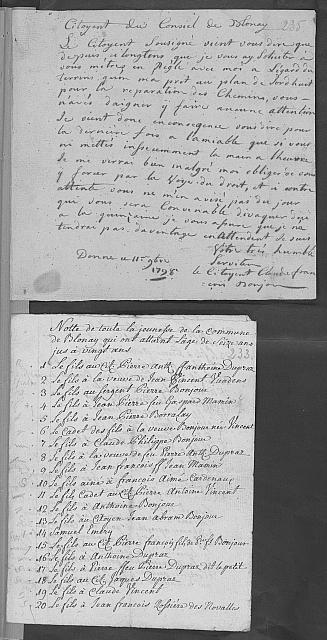 Citoyent du Conseil de Blonay
235
Le Citoyent Sousigné vient vous dire que
depuis si longtems que je vous ay
vous mètres en Regle avec moi a Legard du
terrein quon ma prot au plan de
pour la reparation des Chemins, vous
navés daigner y faire aucune attention
Je vient donc en consequence vous dire pour
la derniere fois a Lamiable que si vous
ni mettés la main a
Je me verrai bien malgré moi obligé de vous
y forcer par la Voye du droit, et si contre
attente vous ne m'en avisé pas du jour
qui vous sera Convenable
a la quinzaine je vous que je ne
tendrai pas davantage en attendent Je suis
Votre très humble
Serviteur
Donné ce 11e 9bre
1798
le Citoyent Claude fran
Bonjou
Notte de toute la jeunesse de la commune
de Blonay qui ont atteint l'age de Seize ans
jus à vingt ans
233
1 Le fils au Cit. Pierre Anth. ff anthoine Dupraz
2 Le fils à la veuve de Jean Vincent
3 Le fils au sergent Pierre Bonjou
4 Le fils à Jean Pierre feu Gaspard Mamin
5 Le fils à Jean Pierre Borralay
6 Le Cadet des fils à la veuve Bonjou née Vincent
7 Le fils à Claude Philippe Bonjou
8 Le fils à la veuve de feu Pierre Anth. Dupraz
9 Le fils à Jean francois ff Jean Mamin
10 Le fils ainé à francois Aimé Cardenaux
11 Le fils Cadet au Cit. Pierre Antoine Vincent
12 Le fils à Anthoine Bonjou
13 Le fils au Citoyen Jean Abram Bonjour
14 Samuel Emery
15 Le fils au Cit. Pierre francois fils de Bonjour
16 Le fils à Anthoine Dupraz
17 Le fils à Pierre ffeu Pierre Dupraz dit le petit
18 Le fils au Cit. Jaques Dupraz
19 Le fils à Claude Vincent
20 Le fils à Jean francois des Novalles